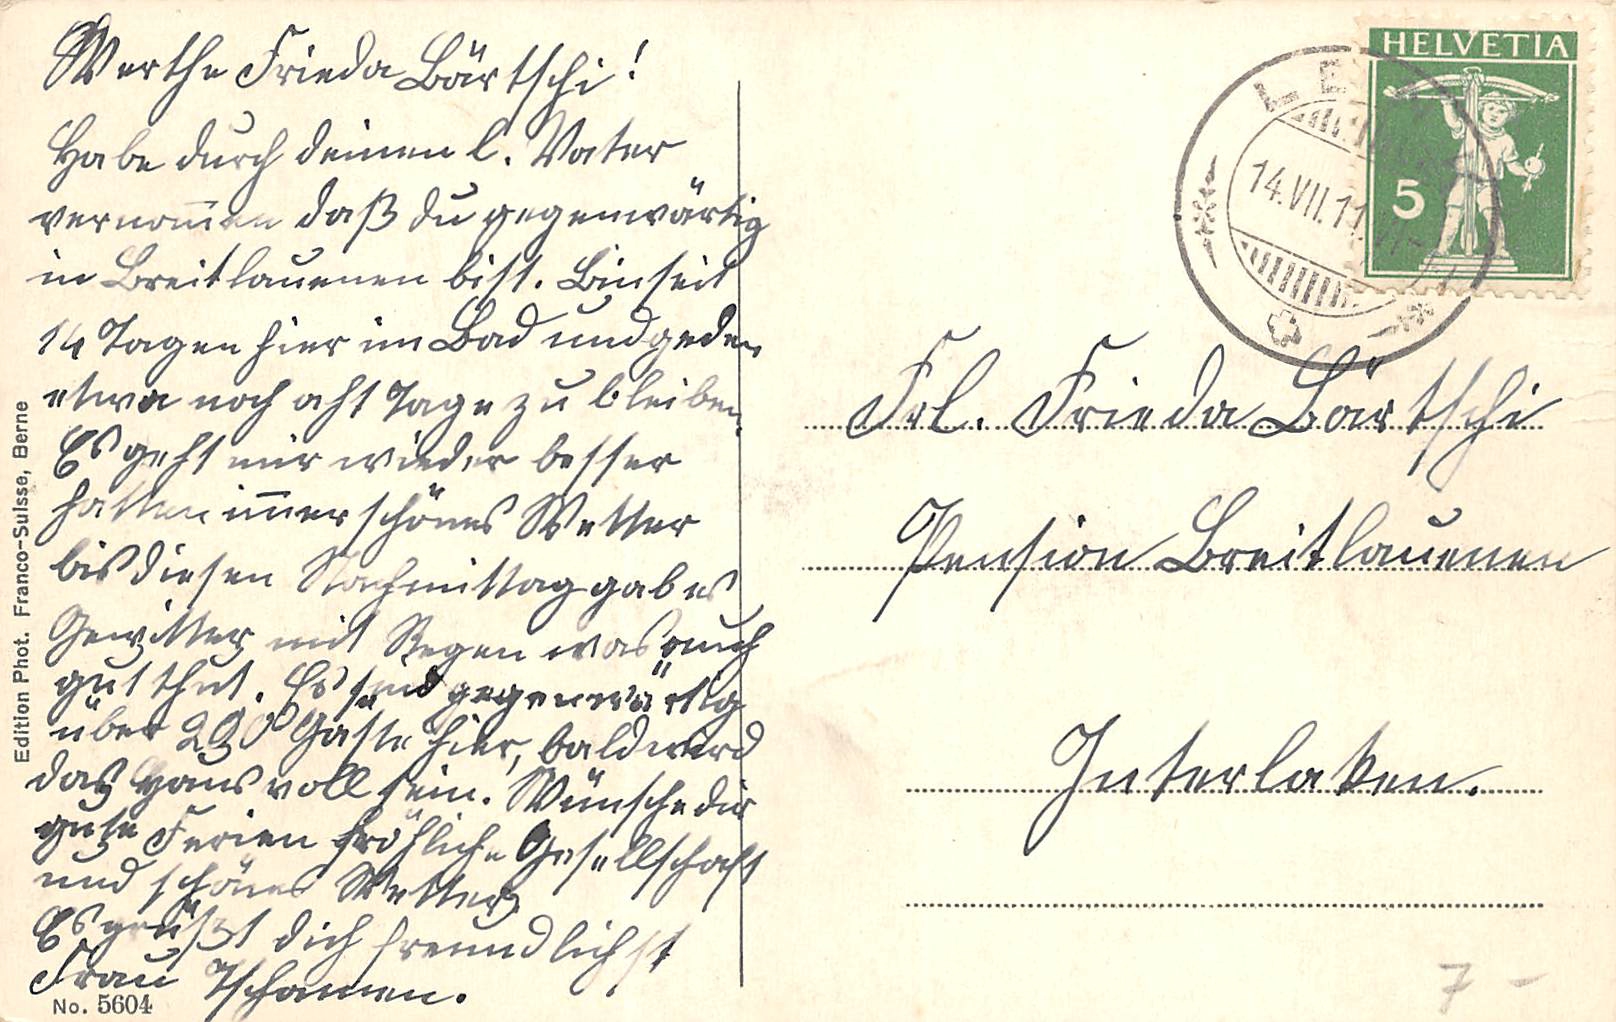 Werthe Frieda Bärtschi!
Habe durch deinen l. Vater
vernom̅en daß du gegenwärtig
in Breitlauenen bist. Bin seit
14 Tagen hier im Bad und geden
etwa noch acht Tage zu bleiben.
Es geht mir wieder besser
hatten im̅er schönes Wetter
bis diesen Nachmittag gab es
Gewitter mit Regen was auch
gut thut. Es sind gegenwärtig
über 230 Gäste hier, bald wird
das Haus voll sein. Wünsche dir
gute Ferien fröhliche Gesellschaft
und schönes Wetter
Es grüßt dich freundlichst
Frau Tschannen.
No. 5604
Edition Phot. Franco-Suisse, Berne
HELVETIA
5
14.VII.11
Frl. Frieda Bärtschi
Pension Breitlauenen
Interlaken.
7 -